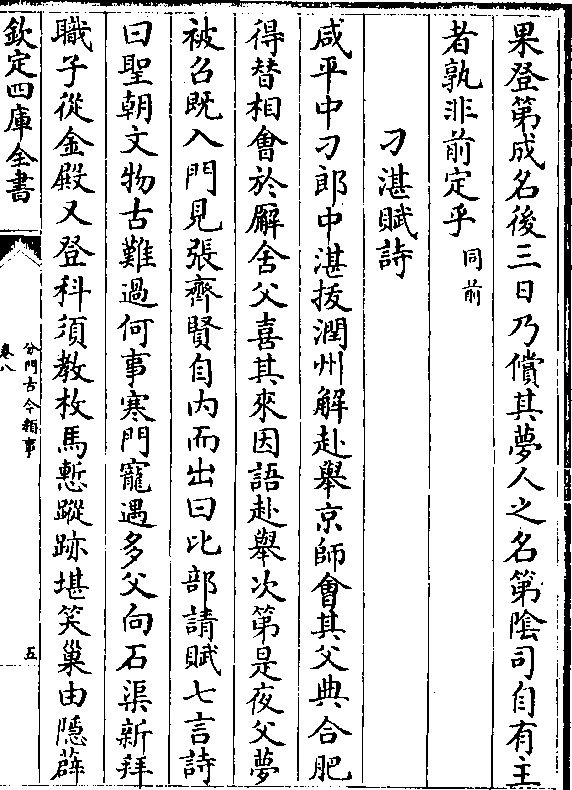 果登第成名後三日乃償其夢人之名第陰司自有主
者孰非前定乎 同前
刁湛賦詩
咸平中刁郎中湛拔潤州解赴舉京師會其父典合肥
得替相會於廨舍父喜其來因語赴舉次第是夜父夢
被召既入門見張齊賢自内而出曰比部請賦七言詩
曰聖朝文物古難過何事寒門寵遇多父向石渠新拜
職子從金殿又登科須教枚馬慙蹤跡堪笑巢由隱薜
欽定四庫全書
分門古今類事
卷八
五